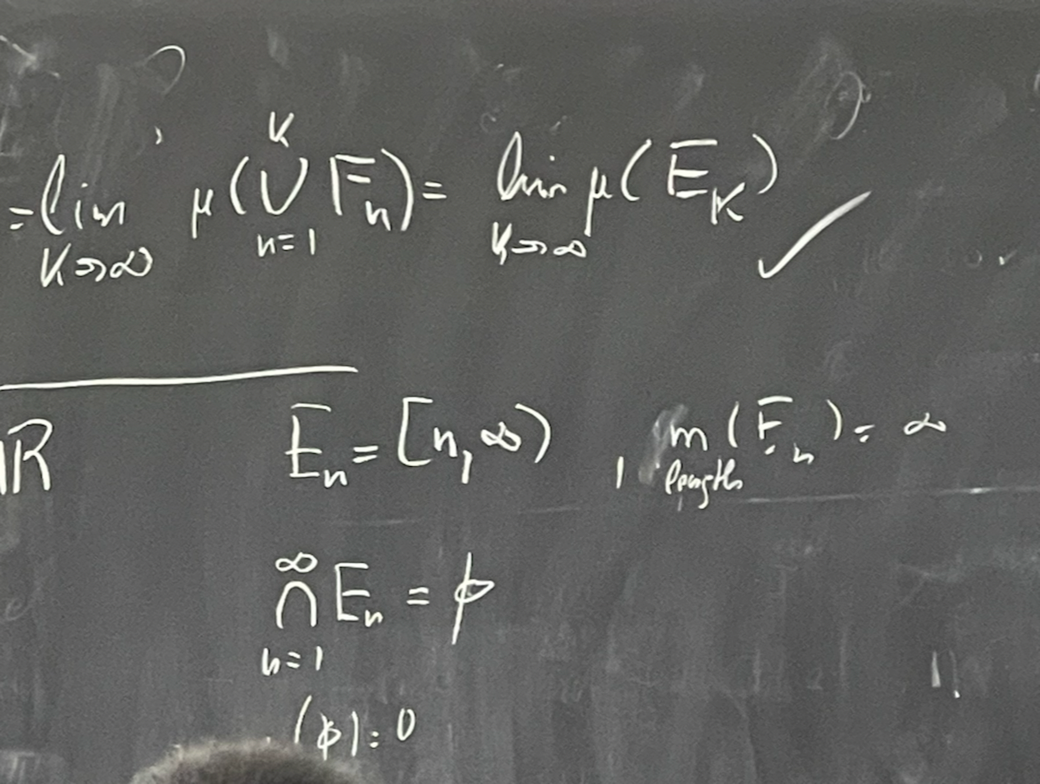 = lim K→∞ μ(⋃ K n=1 Fₙ) = lim K→∞ μ(E_K) ✓
ℝ Eₙ = [n, ∞) , m(Eₙ) = ∞
length
∞
⋂ Eₙ = ϕ
n=1
(ϕ) = 0